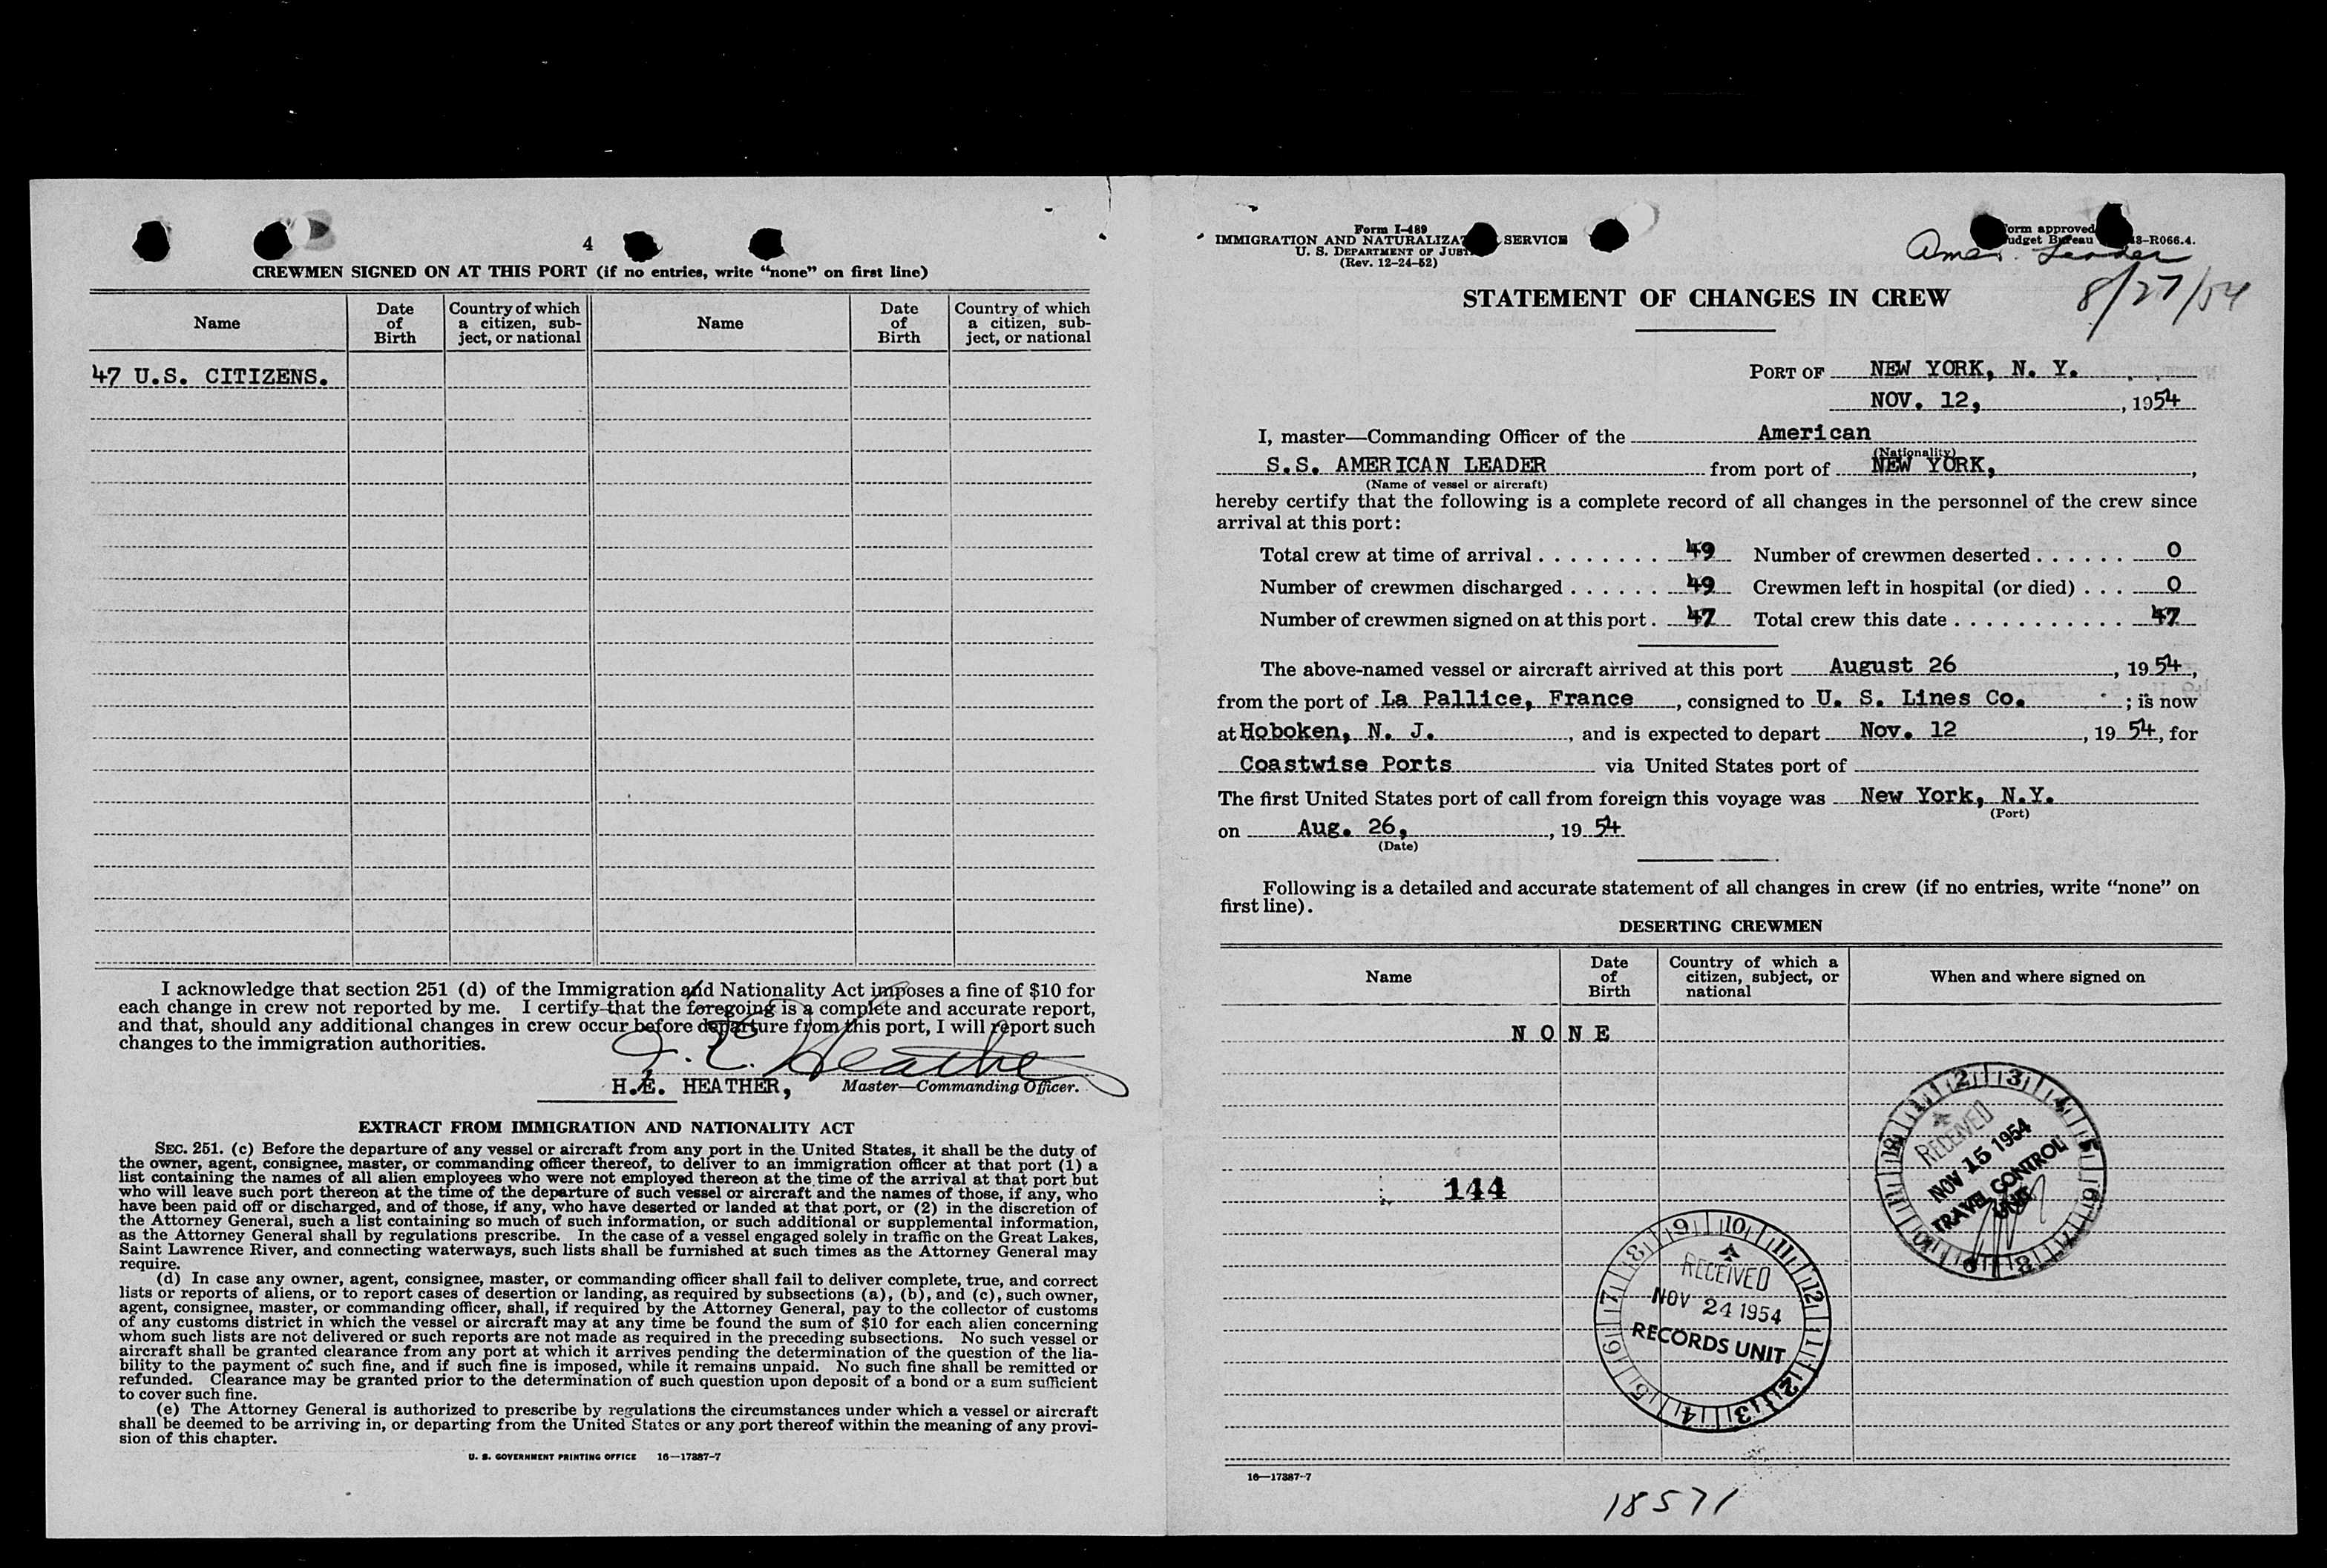 4
CREWMEN SIGNED ON AT THIS PORT (if no entries, write "none" on first line)
Name
Date of Birth
Country of which a citizen, sub-ject, or national
Name
Date of Birth
Country of which a citizen, sub-ject, or national
47 U.S. CITIZENS.
I acknowledge that section 251 (d) of the Immigration and Nationality Act imposes a fine of $10 for
each change in crew not reported by me. I certify that the foregoing is a complete and accurate report,
and that, should any additional changes in crew occur before departure from this port, I will report such
changes to the immigration authorities.
H. E. Heather
H.E. HEATHER, Master—Commanding Officer.
EXTRACT FROM IMMIGRATION AND NATIONALITY ACT
SEC. 251. (c) Before the departure of any vessel or aircraft from any port in the United States, it shall be the duty of
the owner, agent, consignee, master, or commanding officer thereof, to deliver to an immigration officer at that port (1) a
list containing the names of all alien employees who were not employed thereon at the time of the arrival at that port but
who will leave such port thereon at the time of the departure of such vessel or aircraft and the names of those, if any, who
have been paid off or discharged, and of those, if any, who have deserted or landed at that port, or (2) in the discretion of
the Attorney General, such a list containing so much of such information, or such additional or supplemental information,
as the Attorney General shall by regulations prescribe. In the case of a vessel engaged solely in traffic on the Great Lakes,
Saint Lawrence River, and connecting waterways, such lists shall be furnished at such times as the Attorney General may
require.
(d) In case any owner, agent, consignee, master, or commanding officer shall fail to deliver complete, true, and correct
lists or reports of aliens, or to report cases of desertion or landing, as required by subsections (a), (b), and (c), such owner,
agent, consignee, master, or commanding officer, shall, if required by the Attorney General, pay to the collector of customs
of any customs district in which the vessel or aircraft may at any time be found the sum of $10 for each alien concerning
whom such lists are not delivered or such reports are not made as required in the preceding subsections. No such vessel or
aircraft shall be granted clearance from any port at which it arrives pending the determination of the question of the lia-
bility to the payment of such fine, and if such fine is imposed, while it remains unpaid. No such fine shall be remitted or
refunded. Clearance may be granted prior to the determination of such question upon deposit of a bond or a sum sufficient
to cover such fine.
(e) The Attorney General is authorized to prescribe by regulations the circumstances under which a vessel or aircraft
shall be deemed to be arriving in, or departing from the United States or any port thereof within the meaning of any provi-
sion of this chapter.
U. S. GOVERNMENT PRINTING OFFICE 16—17387-7
Form I-489
IMMIGRATION AND NATURALIZA SERVICE
U. S. DEPARTMENT OF JUST
(Rev. 12-24-52)
orm approved
udget Bureau 8-R066.4.
Amer. Leader
8/27/54
STATEMENT OF CHANGES IN CREW
PORT OF NEW YORK, N. Y.
NOV. 12, , 1954
I, master—Commanding Officer of the American
(Nationality)
S.S. AMERICAN LEADER from port of NEW YORK, ,
(Name of vessel or aircraft)
hereby certify that the following is a complete record of all changes in the personnel of the crew since
arrival at this port:
Total crew at time of arrival . . . . . . . . 49 Number of crewmen deserted . . . . . . 0
Number of crewmen discharged . . . . . . 49 Crewmen left in hospital (or died) . . . 0
Number of crewmen signed on at this port . 47 Total crew this date . . . . . . . . . . . . 47
The above-named vessel or aircraft arrived at this port August 26 , 1954,
from the port of La Pallice, France , consigned to U. S. Lines Co. ; is now
at Hoboken, N. J. , and is expected to depart Nov. 12 , 19 54, for
Coastwise Ports via United States port of
The first United States port of call from foreign this voyage was New York, N.Y.
(Port)
on Aug. 26, , 19 54
(Date)
Following is a detailed and accurate statement of all changes in crew (if no entries, write "none" on
first line).
DESERTING CREWMEN
Name
Date of Birth
Country of which a citizen, subject, or national
When and where signed on
N O N E
144
RECEIVED
NOV 15 1954
TRAVEL CONTROL
UNIT
RECEIVED
NOV 24 1954
RECORDS UNIT
16—17387-7
18571